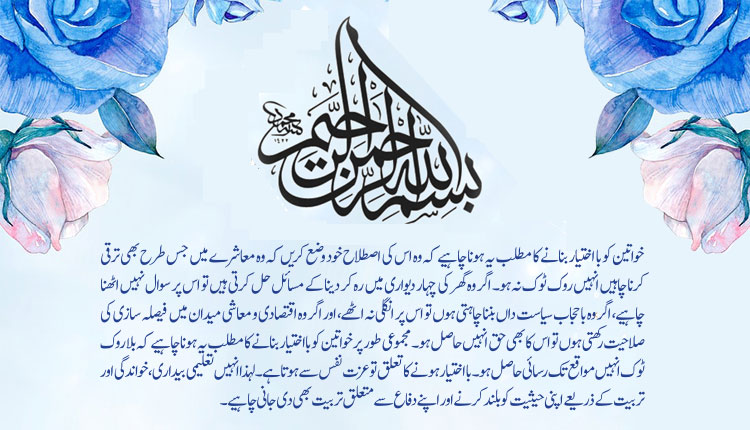 بسم الله الرحمن الرحيم
خواتین کو با اختیار بنانے کا مطلب یہ ہونا چاہیے کہ وہ اس کی اصطلاح خود وضع کریں کہ وہ معاشرے میں جس طرح بھی ترقی
کرنا چاہیں انہیں روک ٹوک نہ ہو۔ اگر وہ گھر کی چہار دیواری میں رہ کر دینا کے مسائل حل کرتی ہیں تو اس پر سوال نہیں اٹھنا
چاہیے، اگر وہ با حجاب سیاست داں بننا چاہتی ہوں تو اس پر انگلی نہ اٹھے، اور اگر وہ اقتصادی و معاشی میدان میں فیصلہ سازی کی
صلاحیت رکھتی ہوں تو اس کا بھی حق انہیں حاصل ہو۔ مجموعی طور پر خواتین کو با اختیار بنانے کا مطلب یہ ہونا چاہیے کہ بلا روک
ٹوک انہیں مواقع تک رسائی حاصل ہو۔ با اختیار ہونے کا تعلق تو عزت نفس سے ہوتا ہے۔ لہذا انہیں تعلیمی بیداری، خواندگی اور
تربیت کے ذریعے اپنی حیثیت کو بلند کرنے اور اپنے دفاع سے متعلق تربیت بھی دی جانی چاہیے۔